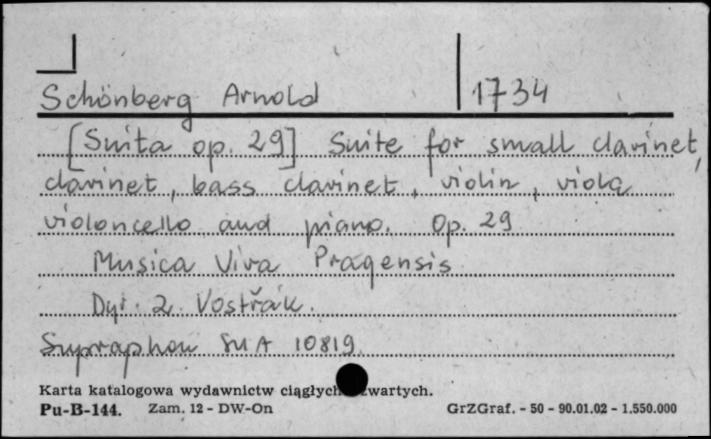 Schönberg Arnold 1734
[Suita op. 29] Suite for small clarinet,
clarinet, bass clarinet, violin, viola,
violoncello and piano. Op. 29
Musica Viva Pragensis
Dyr. Z. Vostřák.
Supraphon SUA 10819.
Karta katalogowa wydawnictw ciągłych zwartych.
Pu-B-144. Zam. 12 - DW-On GrZGraf. - 50 - 90.01.02 - 1.550.000